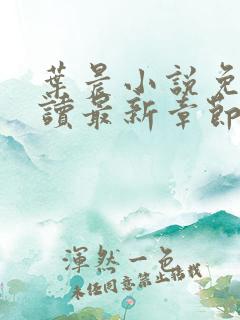 葉晨小說免
讀最新章節
渾然一色
未經同意禁止搭載